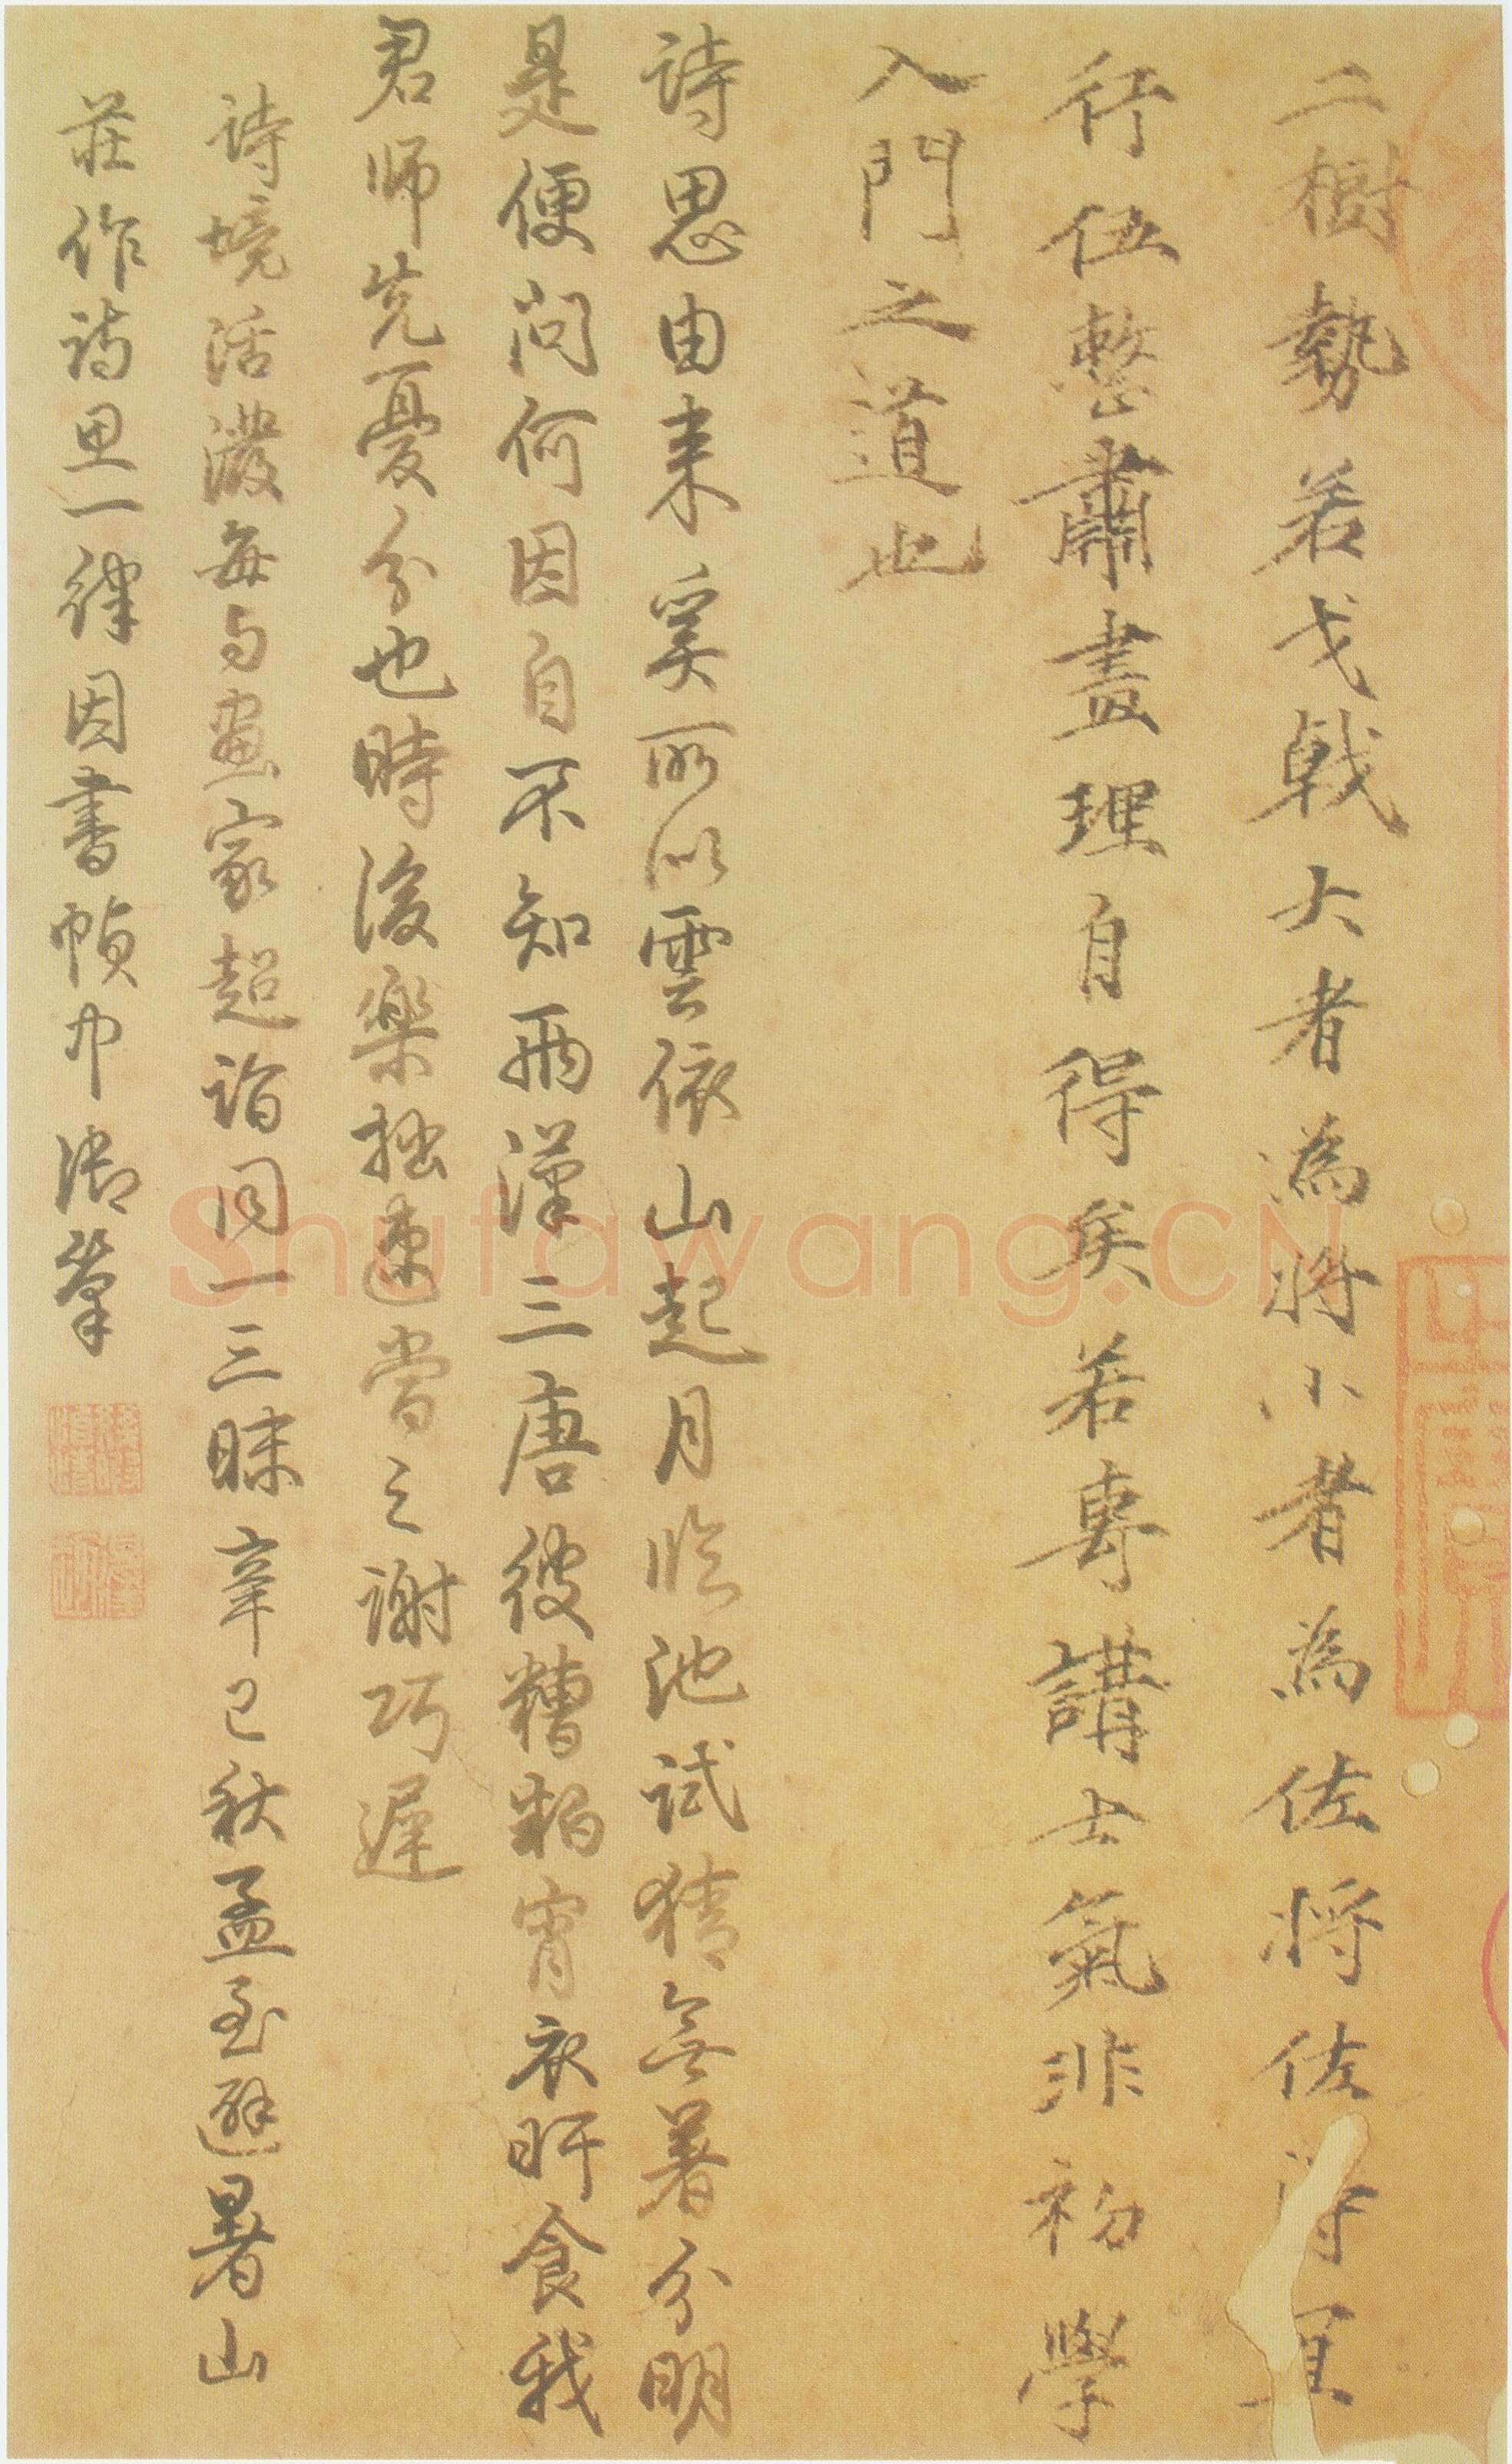 二樹勢若戈戟大者為將小者為佐將佐得宜
行伍整肅畫理自得矣若專講士氣非初學
入門之道也
詩思由来奚所以雲依山起月臨池試猜無著分明
是便問何因自不知兩漢三唐彼糟粕宵衣旰食我
君師先憂分也時後樂拙速當之謝巧遲
詩境活潑每与畫家超詣同一三昧辛巳秋孟至避暑山
莊作詩思一律因書幀中御筆
Shufawang.CN